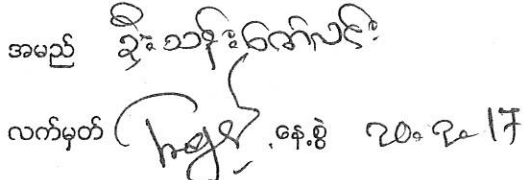 အမည် ဦးသန်းဇော်လင်း
လက်မှတ် နေ့စွဲ ၃၀.၃.17